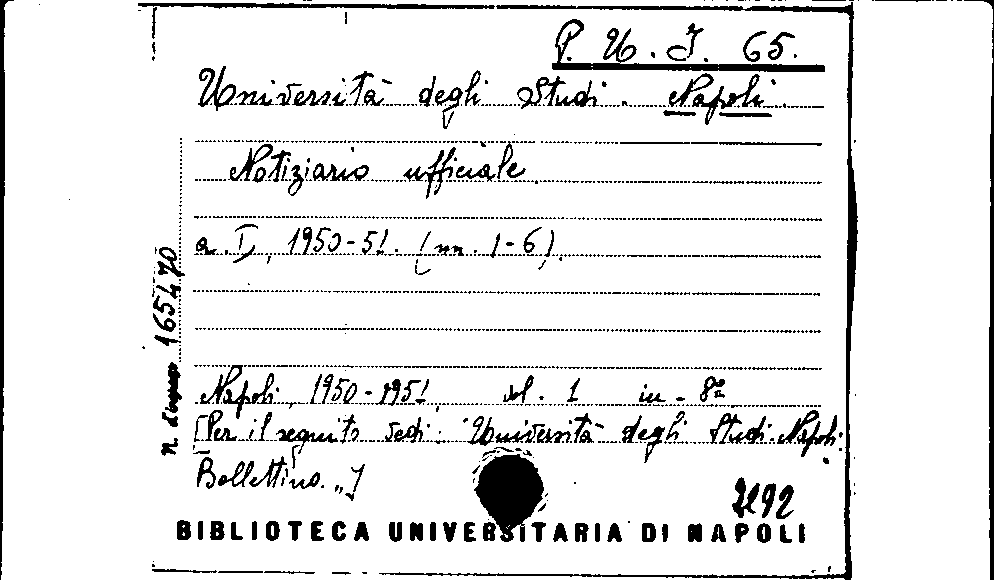 P. U. I. 65.
Università degli Studi. Napoli.
Notiziario ufficiale.
a. I, 1950-51. (nn. 1-6).
n. d'ingresso 165470
Napoli, 1950-1951, vol. 1 in-8º
[Per il seguito vedi: "Università degli Studi. Napoli.
Bollettino."]
BIBLIOTECA UNIVERSITARIA DI NAPOLI